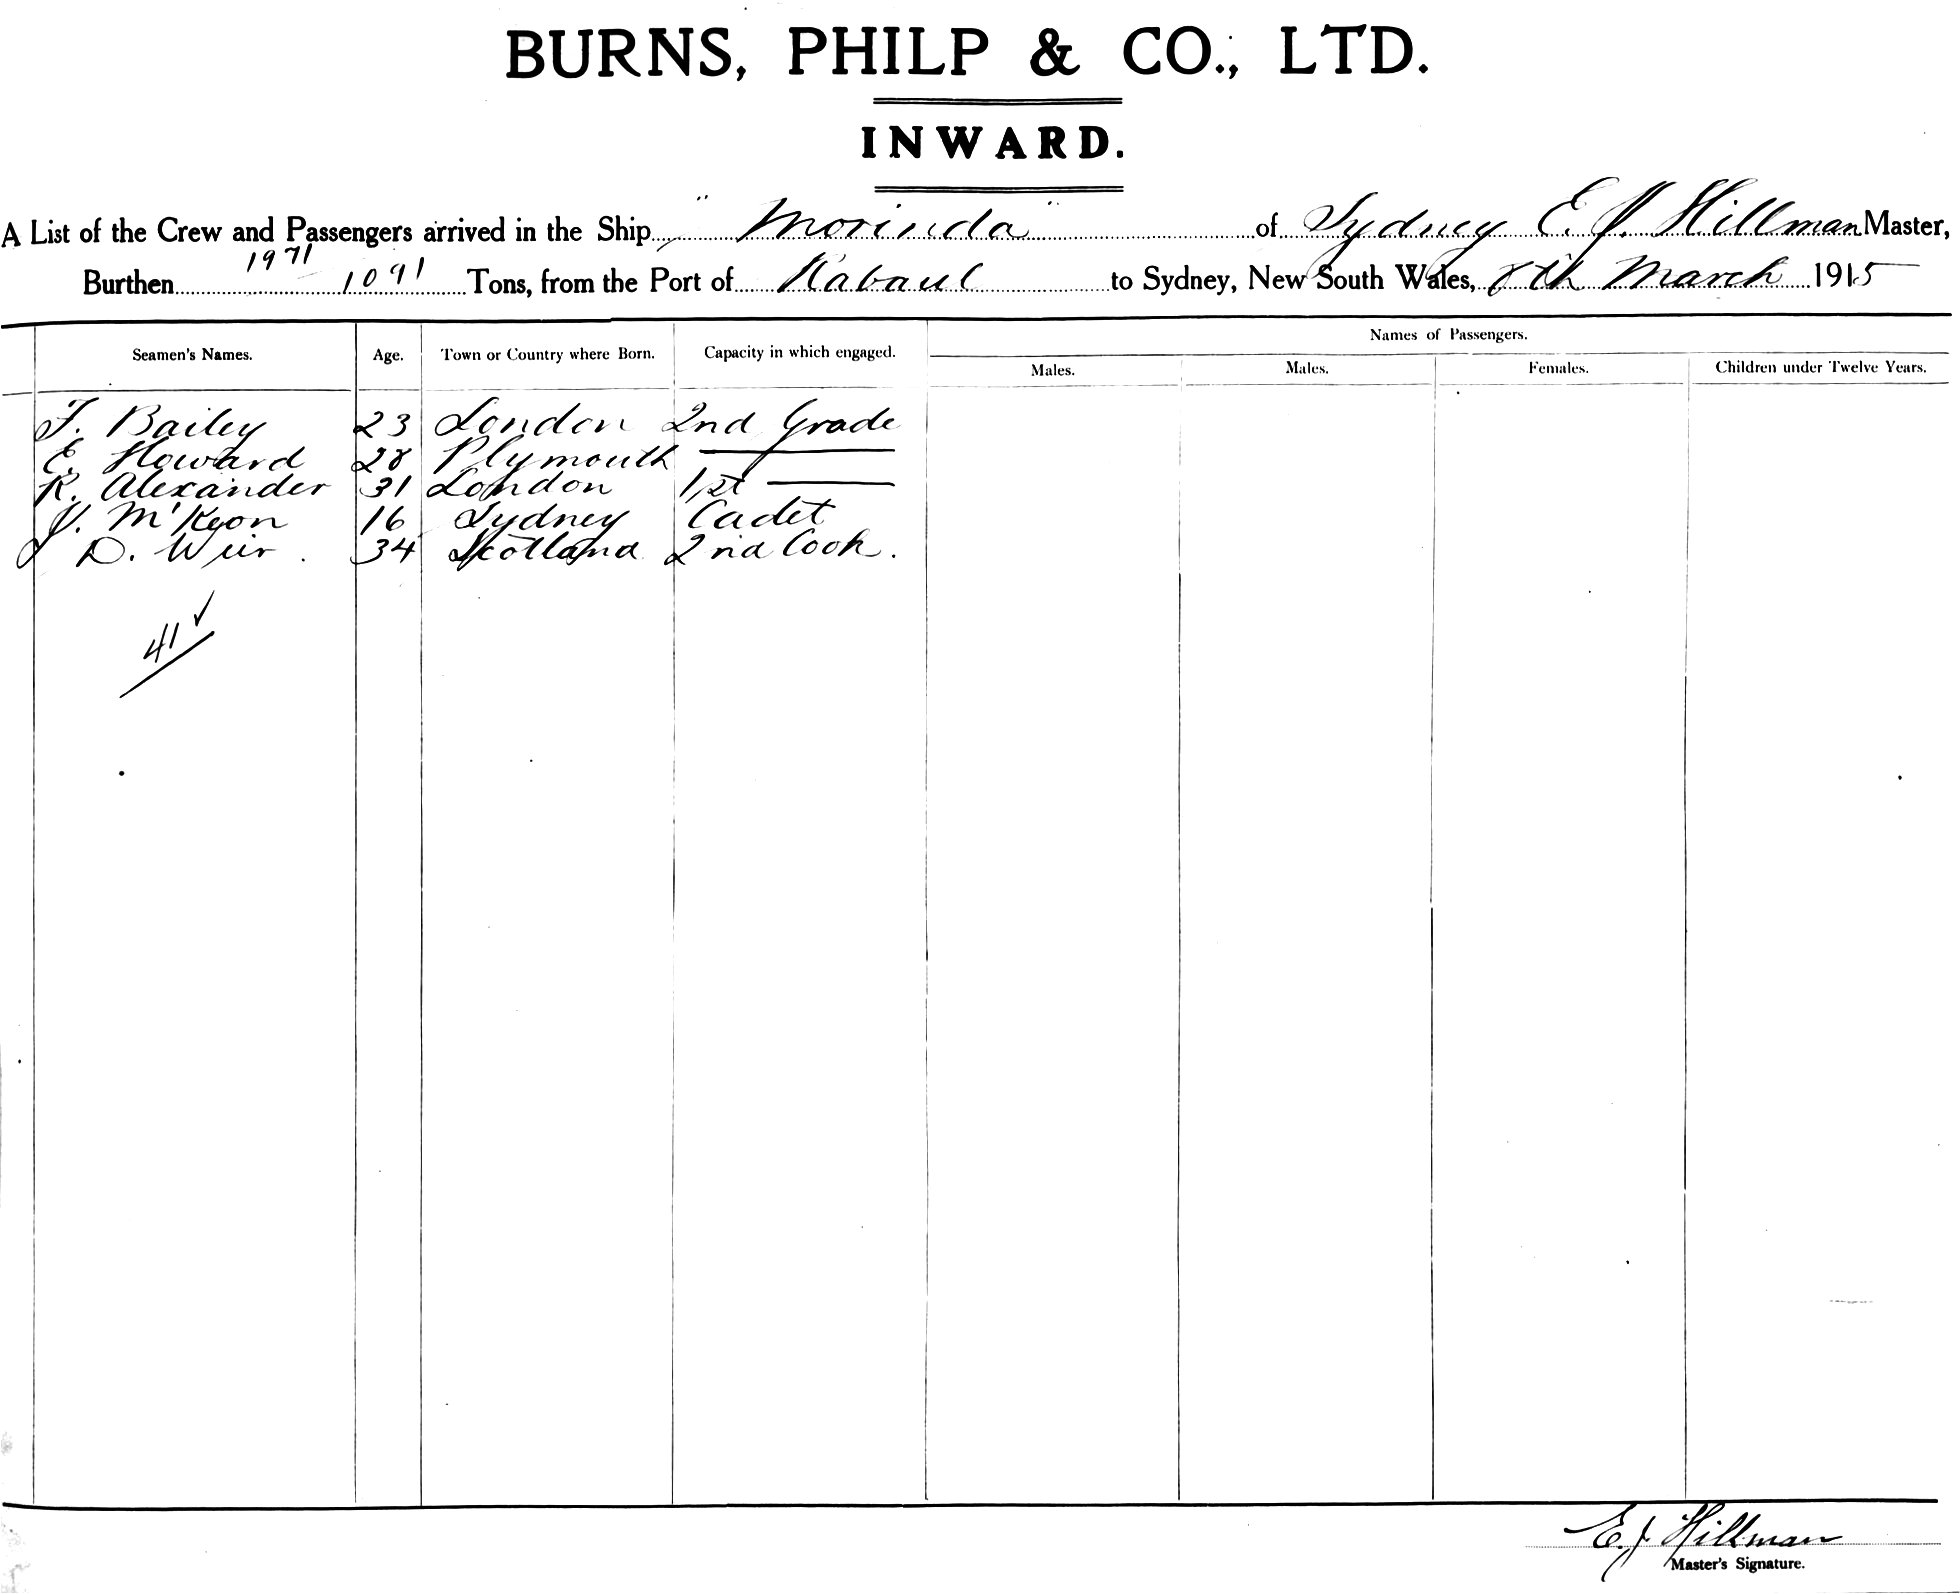 BURNS, PHILP & CO., LTD.
INWARD.
A List of the Crew and Passengers arrived in the Ship "Morinda" of Sydney E. J. Hillman Master,
1971
Burthen 1091 Tons, from the Port of Rabaul to Sydney, New South Wales, 8th March 1915
Names of Passengers.
Seamen's Names. Age. Town or Country where Born. Capacity in which engaged. Males. Males. Females. Children under Twelve Years.
F. Bailey 23 London 2nd Grade
E. Howard 28 Plymouth
R. Alexander 31 London 1st
J. M'Keon 16 Sydney Cadet
D. Weir. 34 Scotland 2nd Cook.
41
E. J. Hillman
Master's Signature.